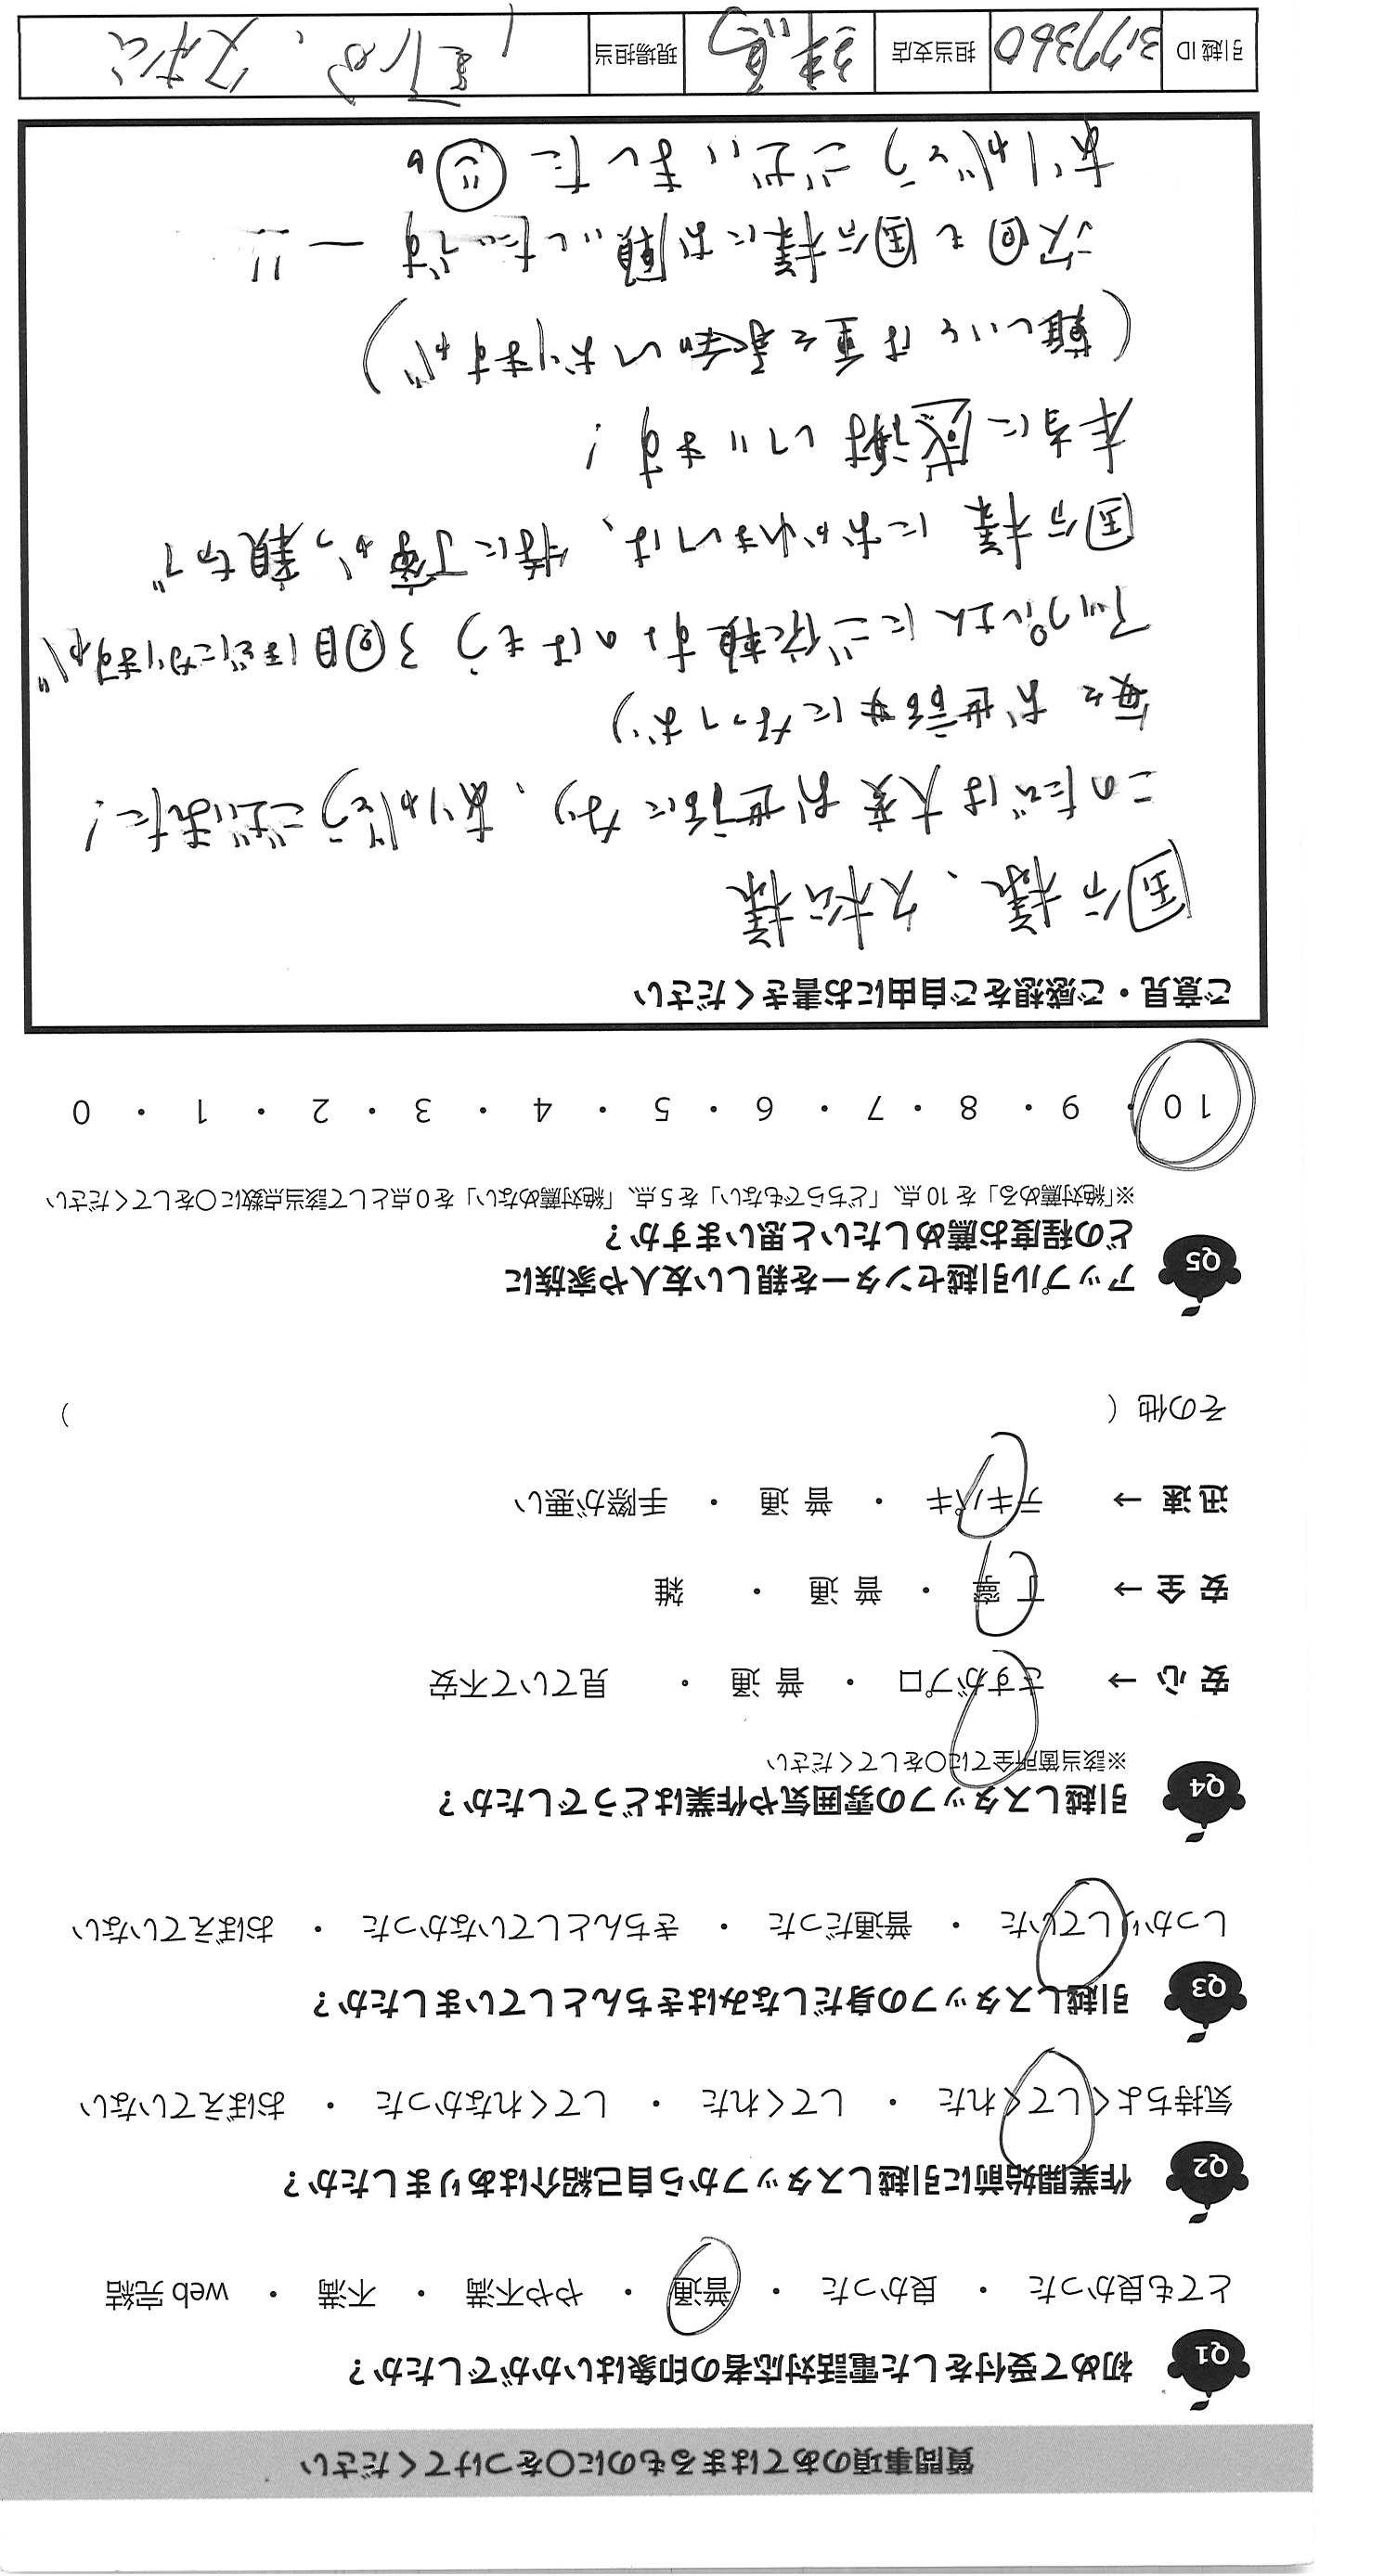 質問事項のあてはまるものに○をつけてください
Q1 初めて受付をした電話対応者の印象はいかがでしたか？
とても良かった ・ 良かった ・ 普通 ・ やや不満 ・ 不満 ・ web 完結
Q2 作業開始前に引越しスタッフから自己紹介はありましたか？
気持ちよくしてくれた ・ してくれた ・ してくれなかった ・ おぼえていない
Q3 引越しスタッフの身だしなみはきちんとしていましたか？
しっかりしていた ・ 普通だった ・ きちんとしていなかった ・ おぼえていない
Q4 引越しスタッフの雰囲気や作業はどうでしたか？
※該当箇所全てに○をしてください
安 心 → さすがプロ ・ 普 通 ・ 見ていて不安
安 全 → 丁 寧 ・ 普 通 ・ 雑
迅 速 → テキパキ ・ 普 通 ・ 手際が悪い
その他（ ）
Q5 アップル引越センターを親しい友人や家族に
どの程度お薦めしたいと思いますか？
※「絶対薦める」を 10 点、「どちらでもない」を 5 点、「絶対薦めない」を 0 点として該当点数に○をしてください
10 ・ 9 ・ 8 ・ 7 ・ 6 ・ 5 ・ 4 ・ 3 ・ 2 ・ 1 ・ 0
ご意見・ご感想をご自由にお書きください
国分様、久松様
このたびは大変お世話になり、ありがとうございました！
毎々お世話になっており
アップルさんにご依頼するのはもう3回目ほどになりますが
国分様におかれましては、特に丁寧かつ親切で
本当に感謝しています！
(難しいとは重々承知しておりますが)
次回も国分様にお願いしたいですー!!
ありがとうございました
引越 ID 3177360 担当支店 現場担当 国分、久松